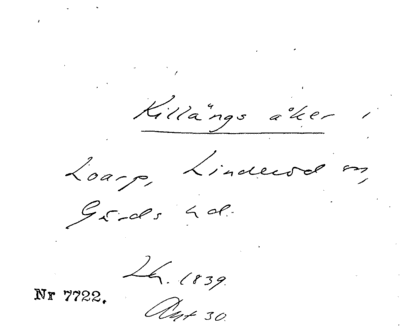 Killängs åker i
Loarp, Linderöd sn,
Gärds hd.
Lh. 1839.
Nr 7722.
Akt 30.